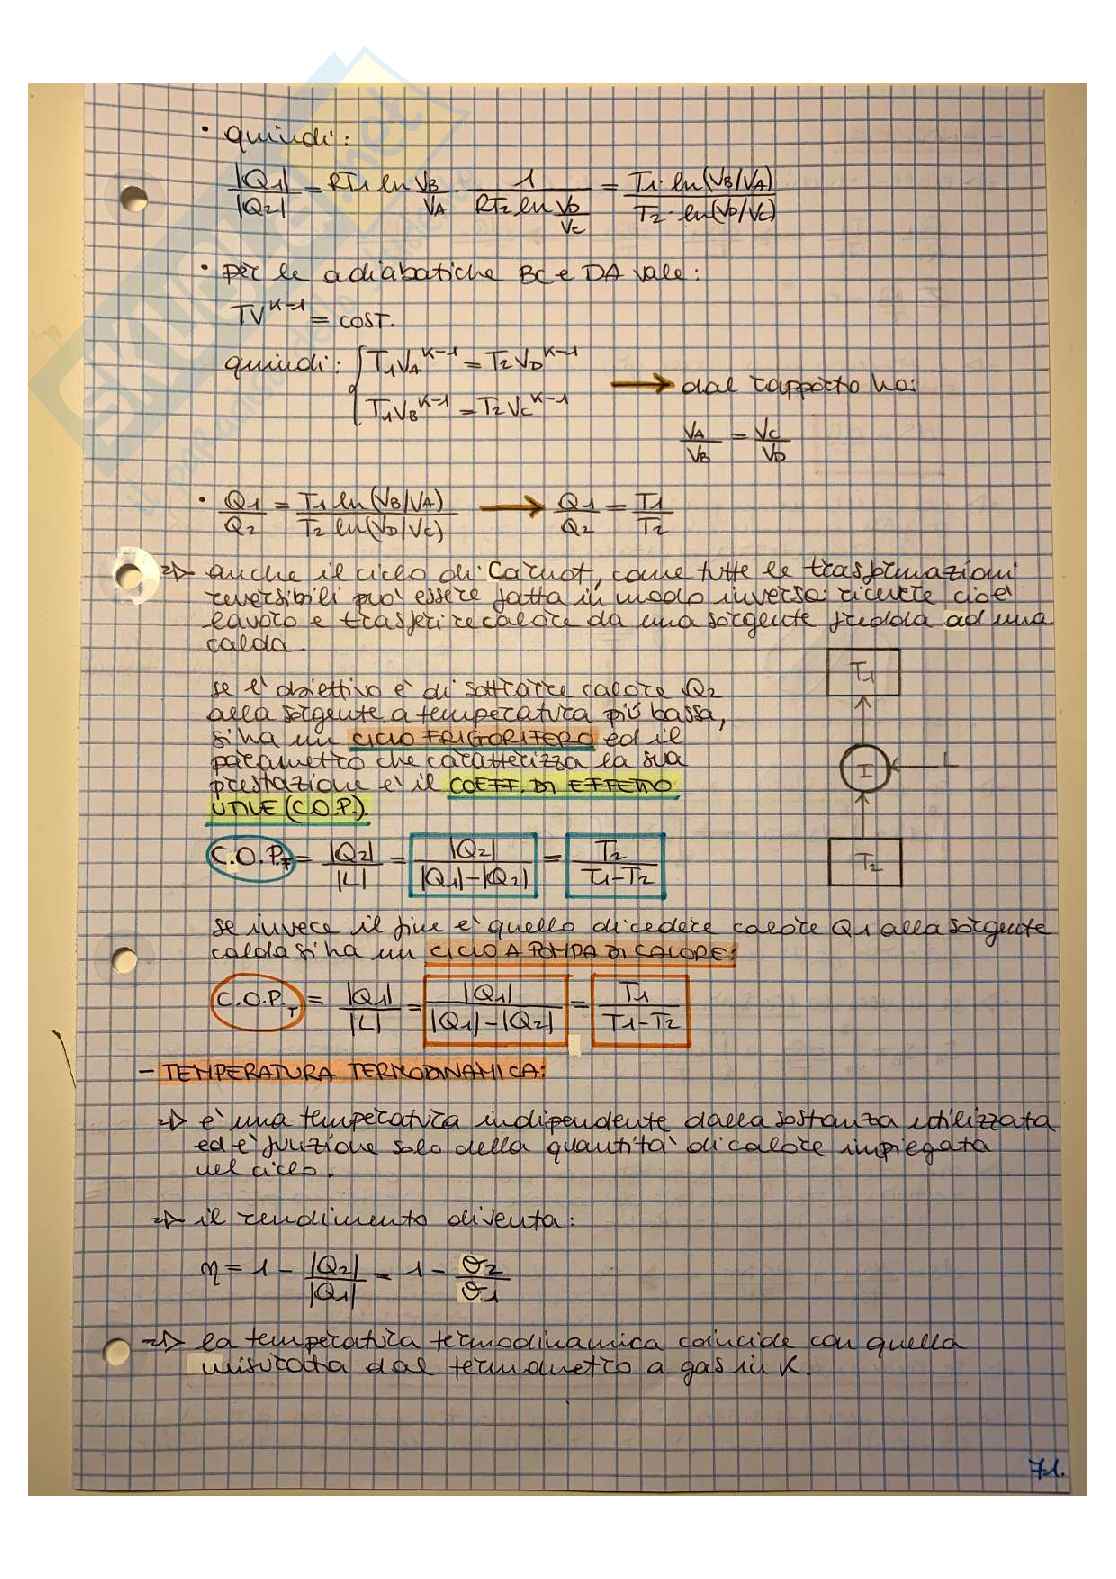 • quindi:
|Q1|/|Q2| = RT1 ln VB/VA 1/(RT2 ln VD/VC) = T1· ln(VB/VA)/T2· ln(VD/VC)
• per le adiabatiche BC e DA vale:
TV^K-1 = COST.
quindi: { T1VA^K-1 = T2VD^K-1
T1VB^K-1 = T2VC^K-1
→ dal rapporto ho:
VA/VB = VC/VD
• Q1/Q2 = T1 ln(VB/VA)/T2 ln(VD/VC) → Q1/Q2 = T1/T2
⇒ anche il ciclo di Carnot, come tutte le trasformazioni
reversibili può essere fatta in modo inverso: ricevere cioè
lavoro e trasferire calore da una sorgente fredda ad una
calda.
se l'obiettivo è di sottrarre calore Q2
alla sorgente a temperatura più bassa,
si ha un CICLO FRIGORIFERO ed il
parametro che caratterizza la sua
prestazione è il COEFF. DI EFFETTO
UTILE (C.O.P.).
T1
I
L
T2
C.O.P.F = |Q2|/|L| = |Q2|/(|Q1|-|Q2|) = T2/(T1-T2)
se invece il fine è quello di cedere calore Q1 alla sorgente
calda si ha un CICLO A POMPA DI CALORE:
C.O.P.T = |Q1|/|L| = |Q1|/(|Q1|-|Q2|) = T1/(T1-T2)
- TEMPERATURA TERMODINAMICA:
⇒ è una temperatura indipendente dalla sostanza utilizzata
ed è funzione solo della quantità di calore impiegata
nel ciclo.
⇒ il rendimento diventa:
η = 1 - |Q2|/|Q1| = 1 - θ2/θ1
⇒ la temperatura termodinamica coincide con quella
misurata dal termometro a gas in K.
71.